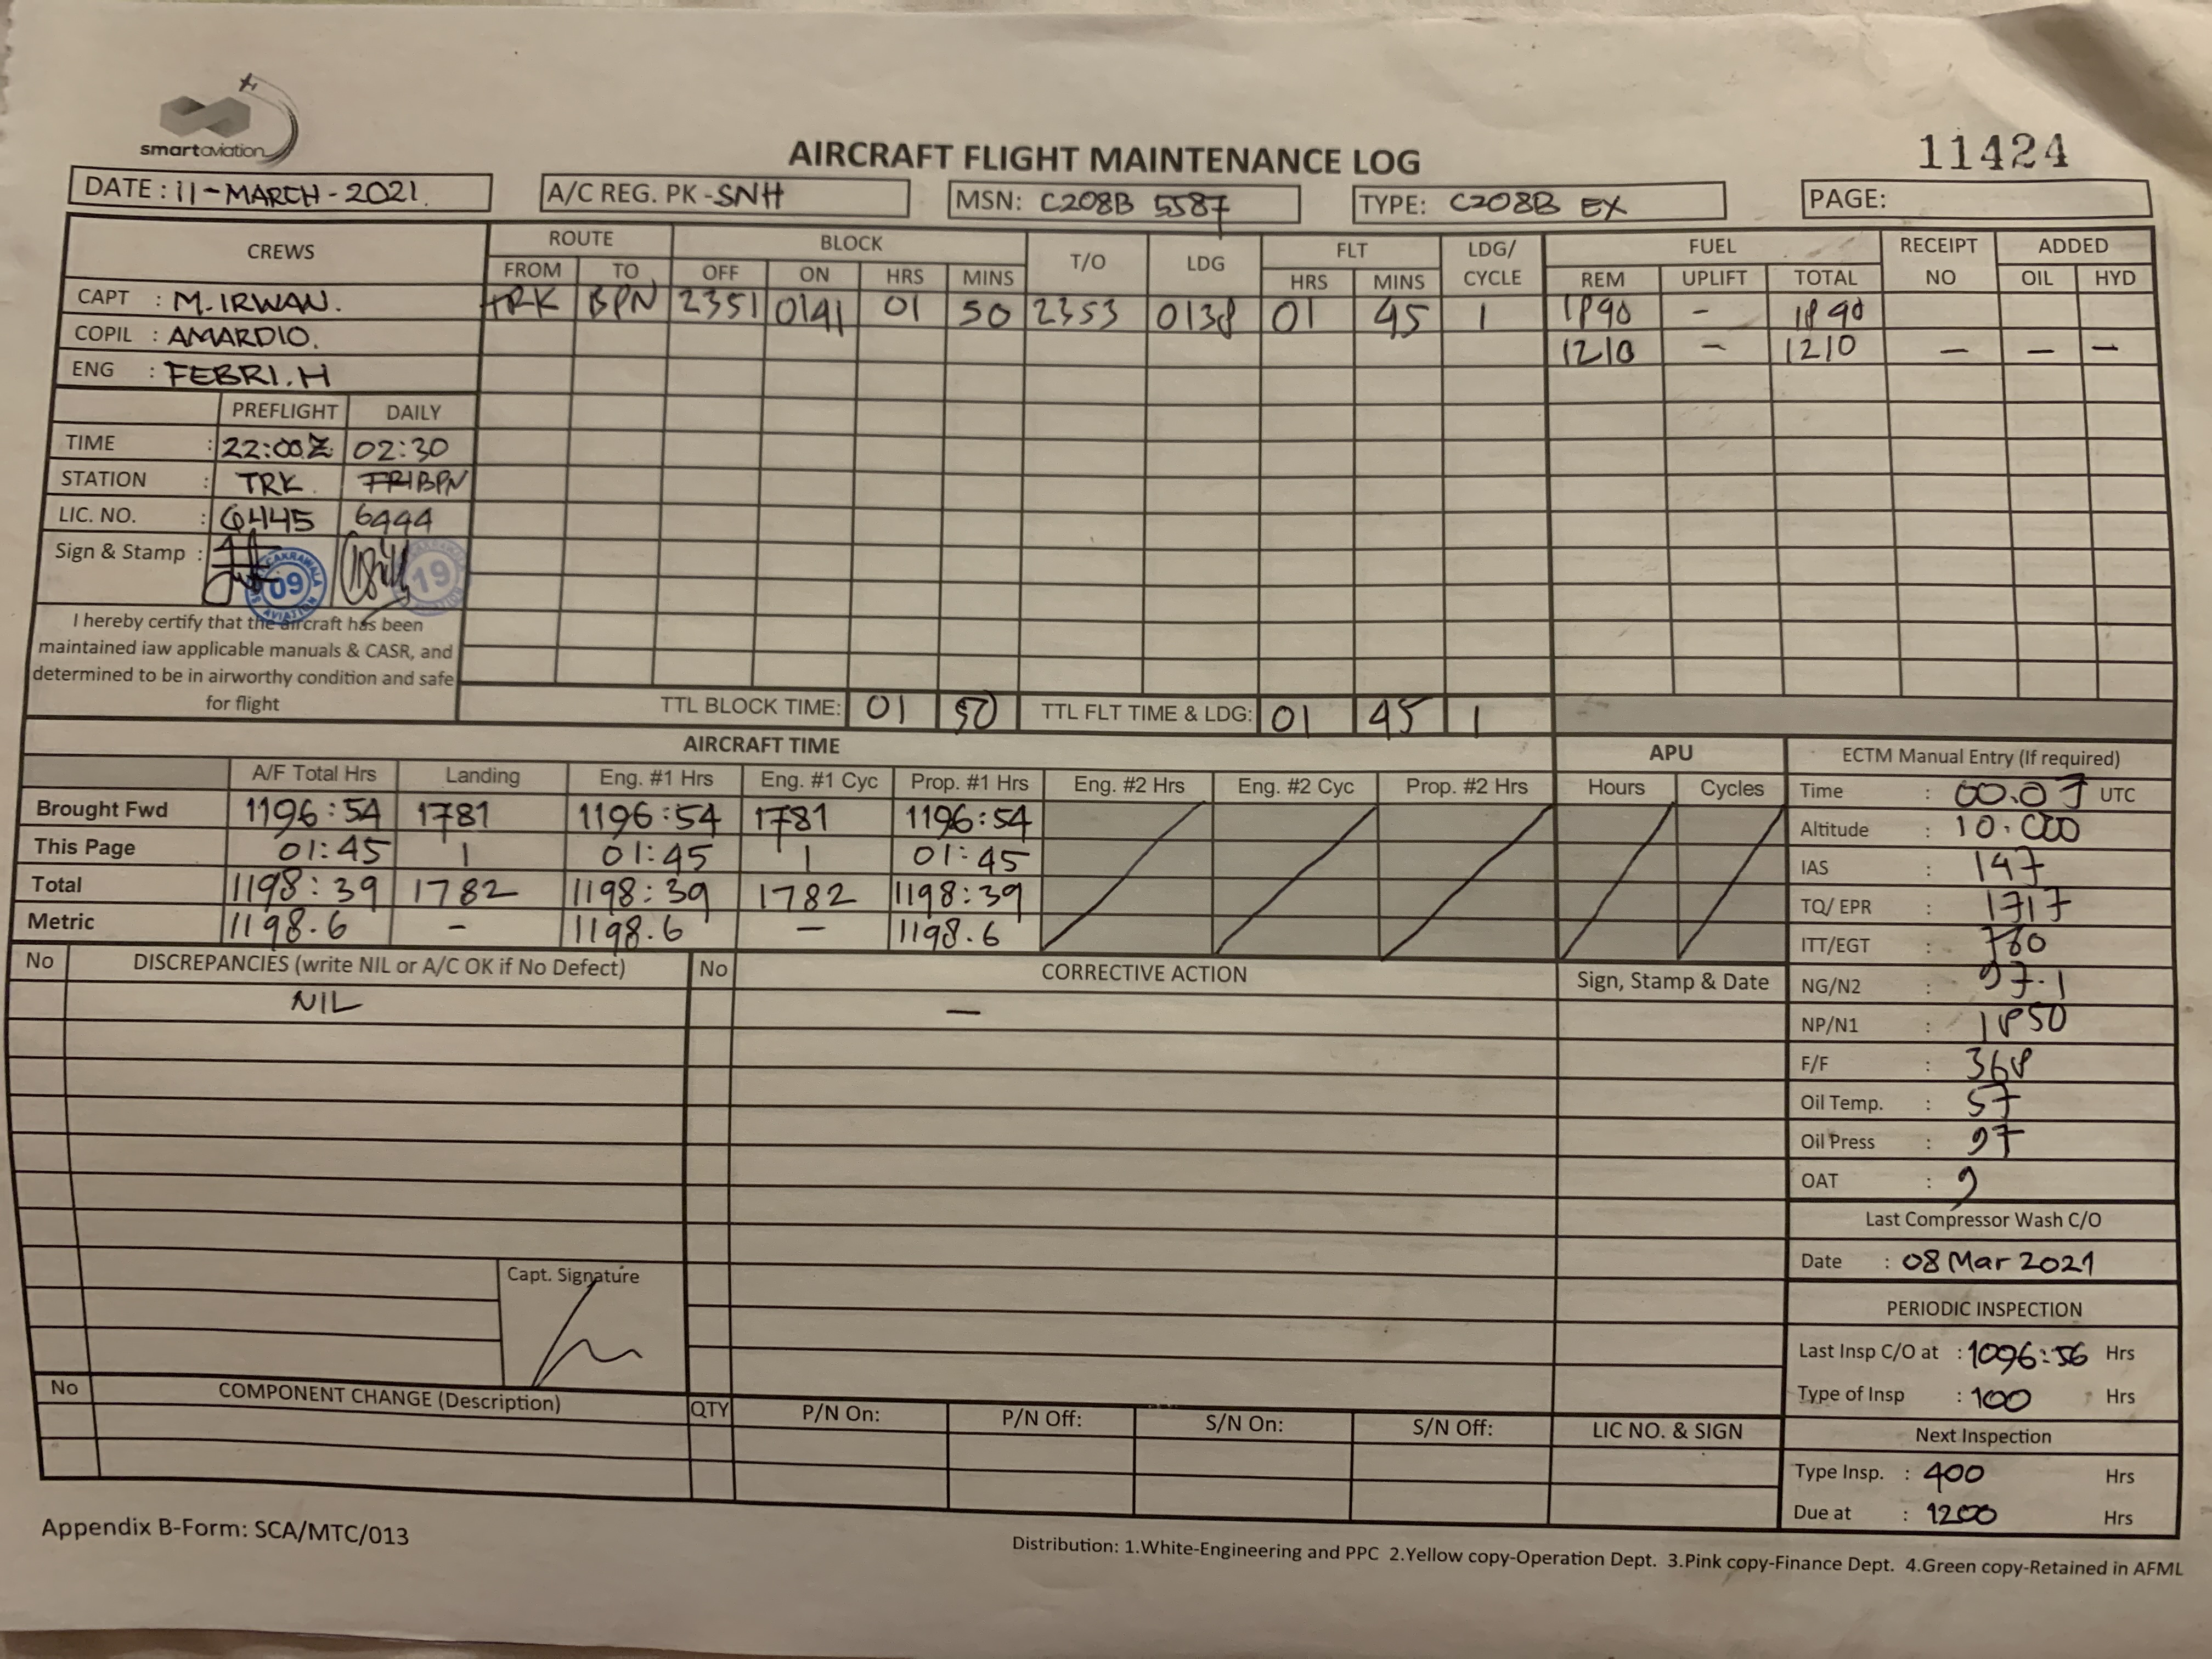 smartaviation
AIRCRAFT FLIGHT MAINTENANCE LOG
11424
DATE : 11-MARCH-2021.
A/C REG. PK-SNH
MSN: C208B 5587
TYPE: C208B EX
PAGE:
CREWS ROUTE BLOCK T/O LDG FLT LDG/ CYCLE FUEL RECEIPT NO ADDED
FROM TO OFF ON HRS MINS HRS MINS REM UPLIFT TOTAL OIL HYD
CAPT : M. IRWAN.
TRK BPN 2351 0141 01 50 2353 0138 01 45 1 1890 - 1890
COPIL : AMARDIO.
1210 - 1210 - - -
ENG : FEBRI.H
PREFLIGHT DAILY
TIME : 22:00Z 02:30
STATION : TRK BPN
LIC. NO. : 6445 6444
Sign & Stamp :
CAKRAWALA 09 AVIATION
CAKRAWALA 19 AVIATION
I hereby certify that the aircraft has been
maintained iaw applicable manuals & CASR, and
determined to be in airworthy condition and safe
for flight
TTL BLOCK TIME: 01 50 TTL FLT TIME & LDG: 01 45 1
AIRCRAFT TIME APU
A/F Total Hrs Landing Eng. #1 Hrs Eng. #1 Cyc Prop. #1 Hrs Eng. #2 Hrs Eng. #2 Cyc Prop. #2 Hrs Hours Cycles
Brought Fwd 1196:54 1781 1196:54 1781 1196:54
This Page 01:45 1 01:45 1 01:45
Total 1198:39 1782 1198:39 1782 1198:39
Metric 1198.6 - 1198.6 - 1198.6
ECTM Manual Entry (If required)
Time : 00.07 UTC
Altitude : 10.000
IAS : 147
TQ/ EPR : 1717
ITT/EGT : 760
NG/N2 : 97.1
NP/N1 : 1850
F/F : 368
Oil Temp. : 57
Oil Press : 97
OAT : 9
Last Compressor Wash C/O
Date : 08 Mar 2021
PERIODIC INSPECTION
Last Insp C/O at : 1096:56 Hrs
Type of Insp : 100 Hrs
Next Inspection
Type Insp. : 400 Hrs
Due at : 1200 Hrs
No DISCREPANCIES (write NIL or A/C OK if No Defect) No CORRECTIVE ACTION Sign, Stamp & Date
NIL -
Capt. Signature
No COMPONENT CHANGE (Description) QTY P/N On: P/N Off: S/N On: S/N Off: LIC NO. & SIGN
Appendix B-Form: SCA/MTC/013
Distribution: 1.White-Engineering and PPC 2.Yellow copy-Operation Dept. 3.Pink copy-Finance Dept. 4.Green copy-Retained in AFML